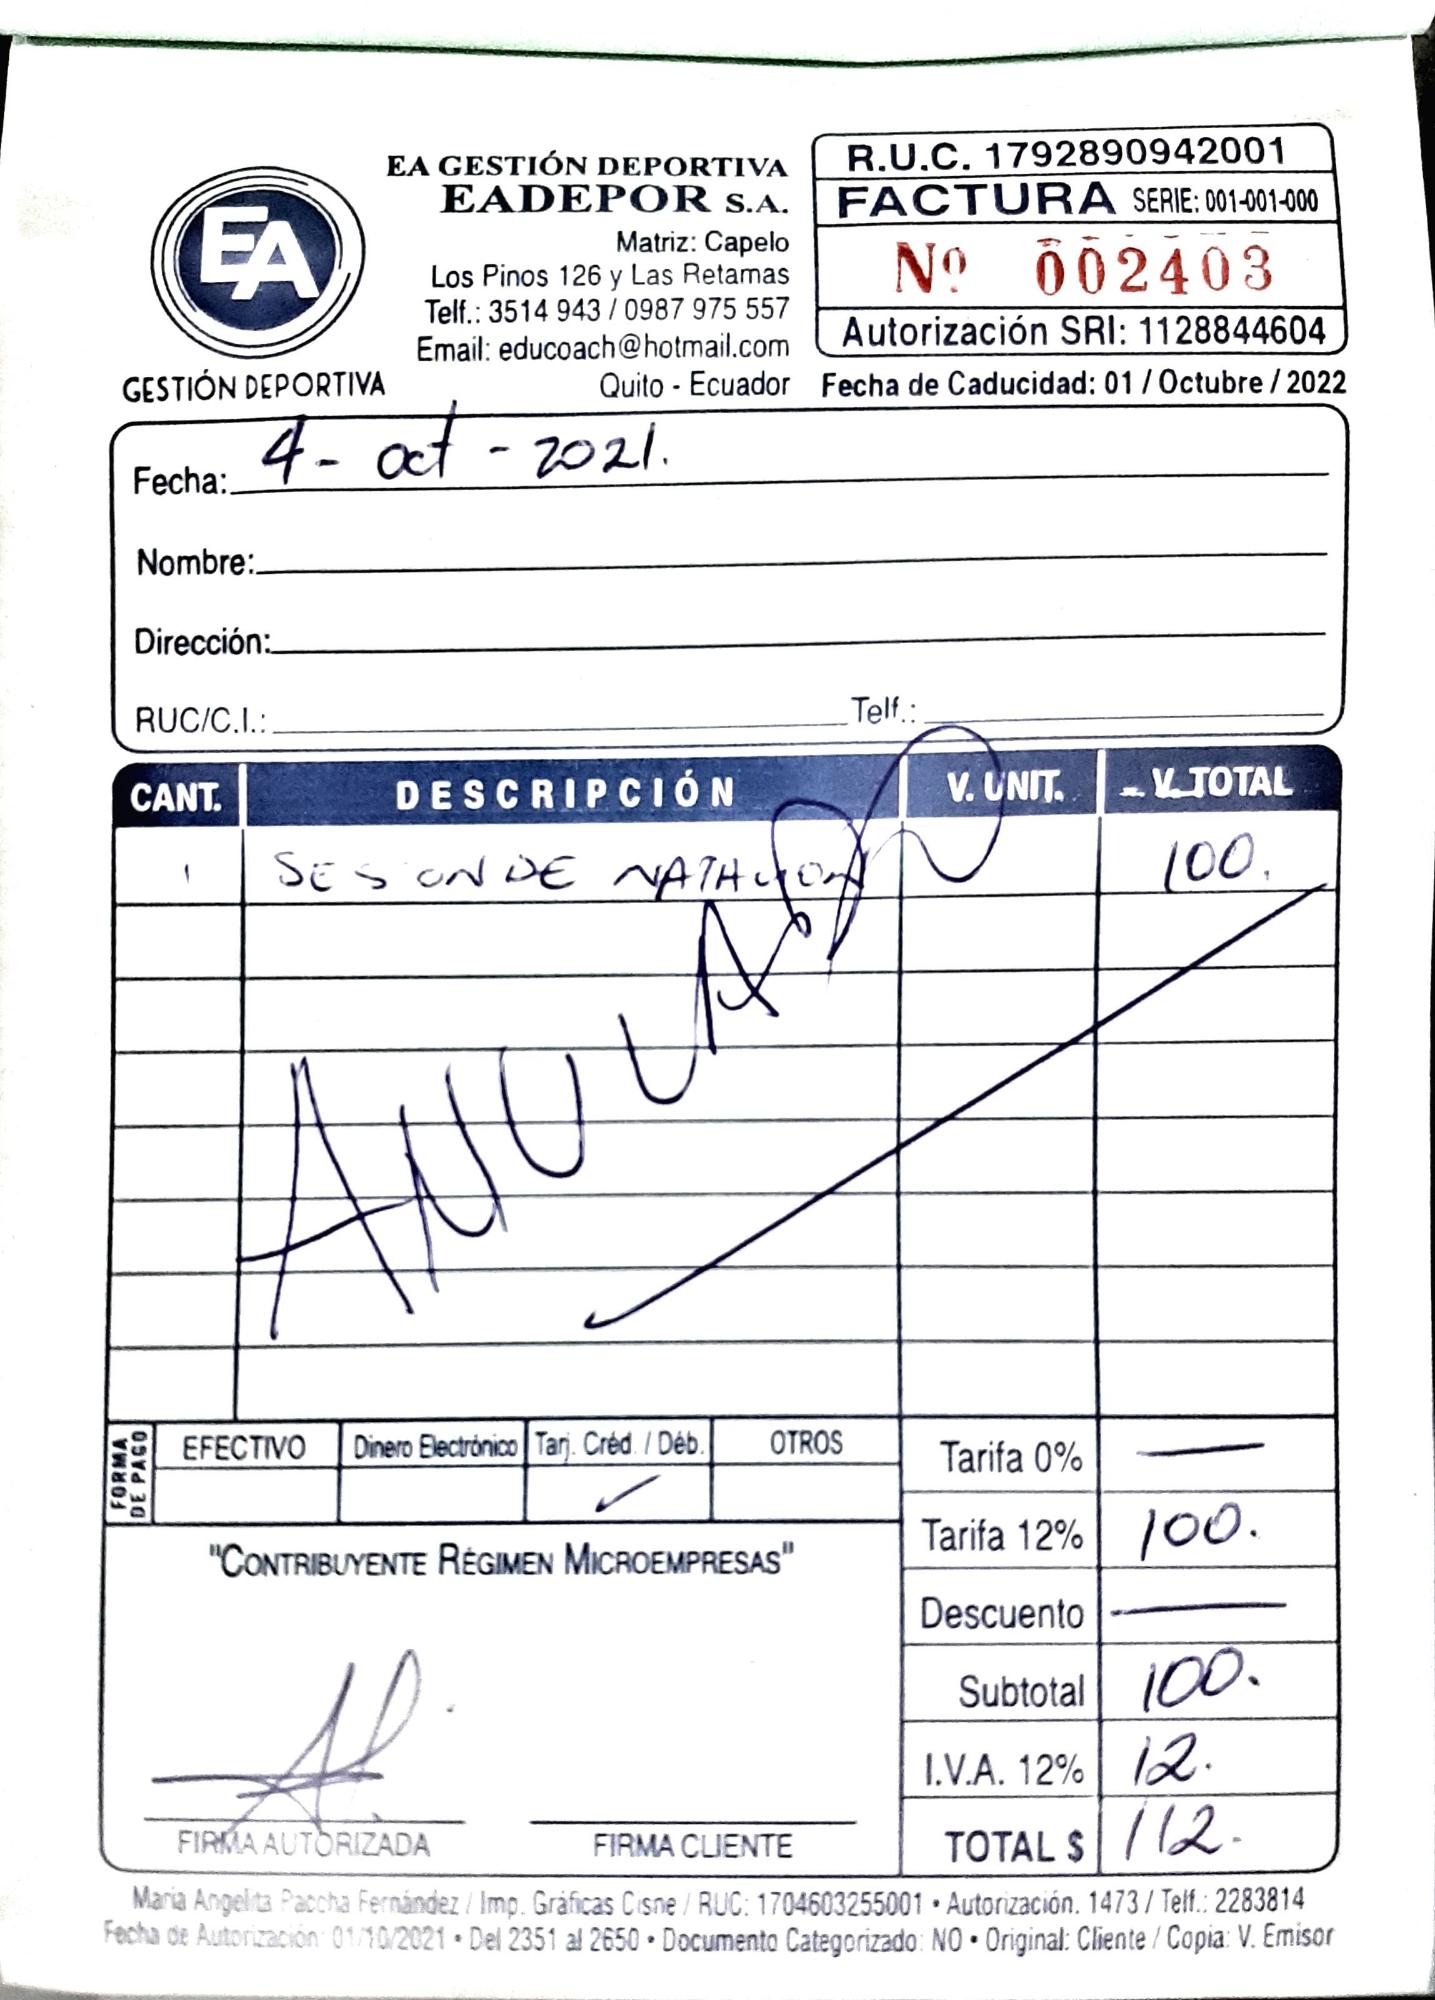 EA
GESTIÓN DEPORTIVA
EA GESTIÓN DEPORTIVA
EADEPOR S.A.
Matriz: Capelo
Los Pinos 126 y Las Retamas
Telf.: 3514 943 / 0987 975 557
Email: educoach@hotmail.com
Quito - Ecuador
R.U.C. 1792890942001
FACTURA SERIE: 001-001-000
Nº 002403
Autorización SRI: 1128844604
Fecha de Caducidad: 01 / Octubre / 2022
Fecha: 4 - oct - 2021.
Nombre:
Dirección:
RUC/C.I.: Telf.:
CANT. DESCRIPCIÓN V. UNIT. V. TOTAL
1 SESION DE NATACION 100.
ANULADO
FORMA DE PAGO
EFECTIVO Dinero Electrónico Tarj. Créd. / Déb. OTROS
Tarifa 0% —
Tarifa 12% 100.
Descuento —
Subtotal 100.
I.V.A. 12% 12.
TOTAL $ 112.
"CONTRIBUYENTE RÉGIMEN MICROEMPRESAS"
FIRMA AUTORIZADA FIRMA CLIENTE
María Angelita Paccha Fernández / Imp. Gráficas Cisne / RUC: 1704603255001 • Autorización. 1473 / Telf.: 2283814
Fecha de Autorización: 01/10/2021 • Del 2351 al 2650 • Documento Categorizado: NO • Original: Cliente / Copia: V. Emisor